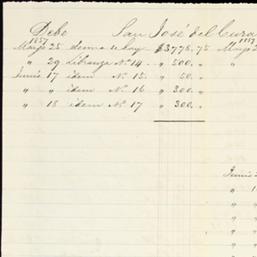 Debe San José del Cura
1857 1857
Mayo 25 deuda a hoy $3778,,75 Mayo 2
" 29 Libranza Nº 14 " 500 "
Junio 17 idem Nº 15 " 50 "
" " idem Nº 16 " 300 "
" 18 idem Nº 17 " 300 "
Junio
" 1
"
"
"
"